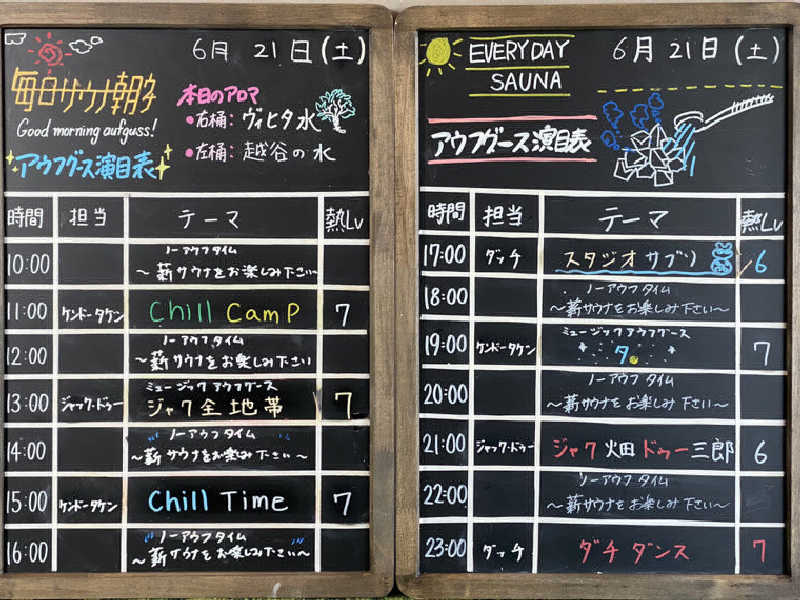 6月 21日(土)
毎日サウナ朝子
Good morning aufguss!
アウフグース演目表
本日のアロマ
•右桶: ヴィヒタ水
•左桶: 越谷の水
時間 担当 テーマ 熱Lv
10:00 ノーアウフタイム
～薪サウナをお楽しみ下さい～
11:00 ケンドータケン Chill CamP 7
12:00 ノーアウフタイム
～薪サウナをお楽しみ下さい
13:00 ジャック・ドゥー ミュージックアウフグース
ジャク全地帯 7
14:00 ノーアウフタイム
～薪サウナをお楽しみ下さい～
15:00 ケンドータケン Chill Time 7
16:00 ノーアウフタイム
～薪サウナをお楽しみ下さい～
EVERYDAY
SAUNA
6月 21日(土)
アウフグース演目表
時間 担当 テーマ 熱Lv
17:00 ダッチ スタジオサブリ 6
18:00 ノーアウフタイム
～薪サウナをお楽しみ下さい～
19:00 ケンドータケン ミュージックアウフグース
夕。 7
20:00 ノーアウフタイム
～薪サウナをお楽しみ下さい～
21:00 ジャック・ドゥー ジャク畑ドゥー三郎 6
22:00 ノーアウフタイム
～薪サウナをお楽しみ下さい～
23:00 ダッチ ダチダンス 7